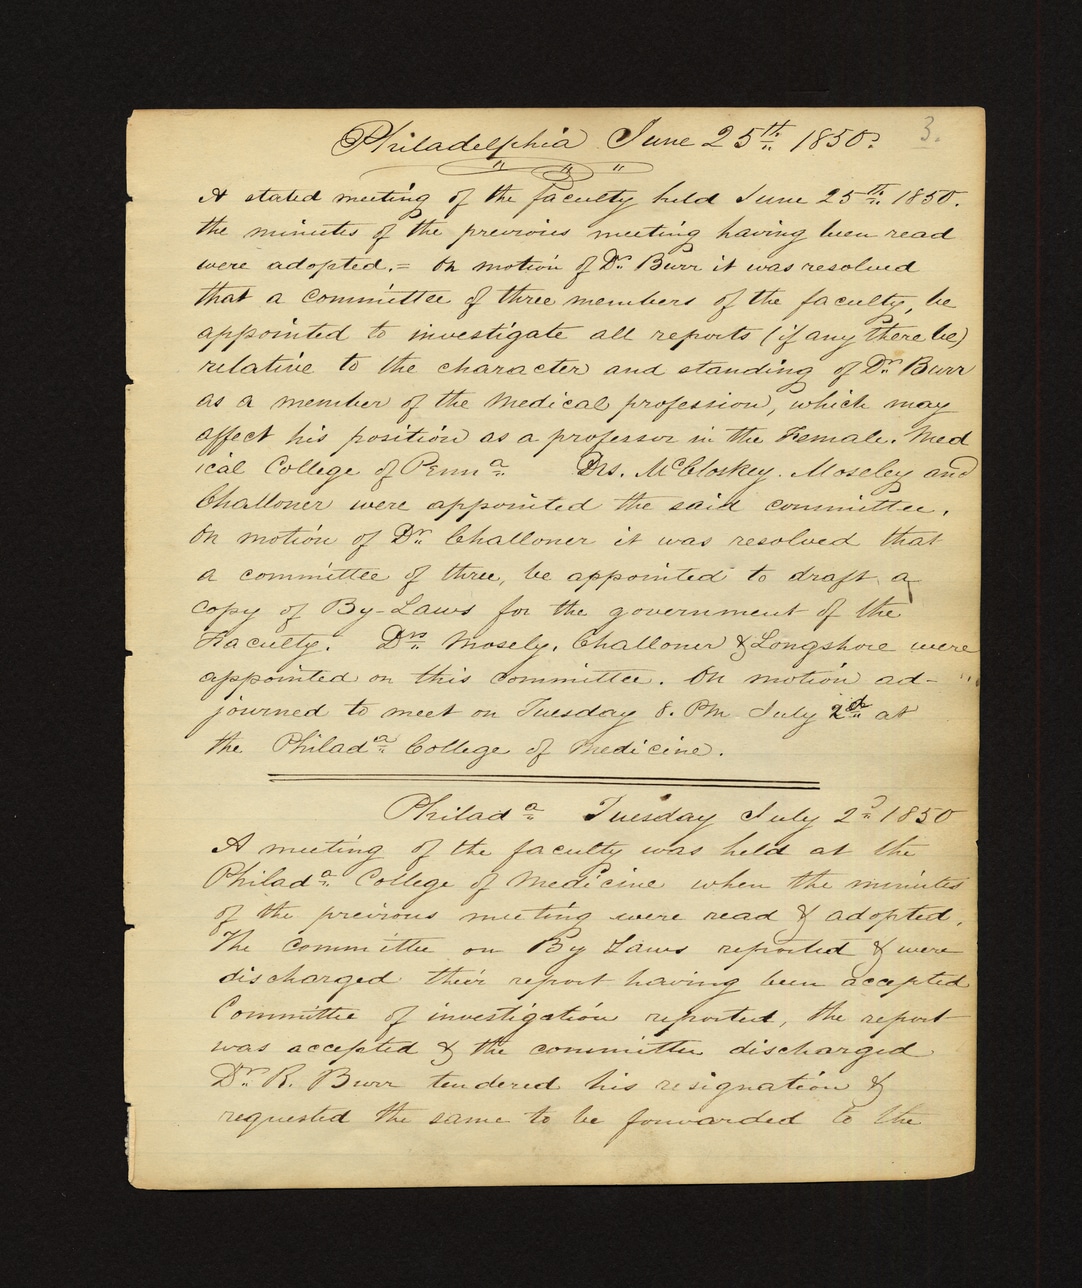 3.
Philadelphia June 25th 1850.
A stated meeting of the faculty held June 25th 1850.
the minutes of the previous meeting having been read
were adopted. = On motion of Dr Burr it was resolved
that a committee of three members of the faculty, be
appointed to investigate all reports (if any there be)
relative to the character and standing of Dr Burr
as a member of the medical profession, which may
affect his position as a professor in the Female. Med
ical College of Penna Drs. McCloskey. Moseley and
Challoner were appointed the said committee.
On motion of Dr Challoner it was resolved that
a committee of three, be appointed to draft a
copy of By-Laws for the government of the
Faculty. Drs Mosely, Challoner & Longshore were
appointed on this committee. On motion ad-
journed to meet on Tuesday 8. PM July 2d at
the Philada College of Medicine.
Philada Tuesday July 2d 1850
A meeting of the faculty was held at the
Philada College of Medicine when the minutes
of the previous meeting were read & adopted.
The committee on By Laws reported & were
discharged their report having been accepted
Committee of investigation reported, the report
was accepted & the committee discharged
Dr R. Burr tendered his resignation &
requested the same to be forwarded to the